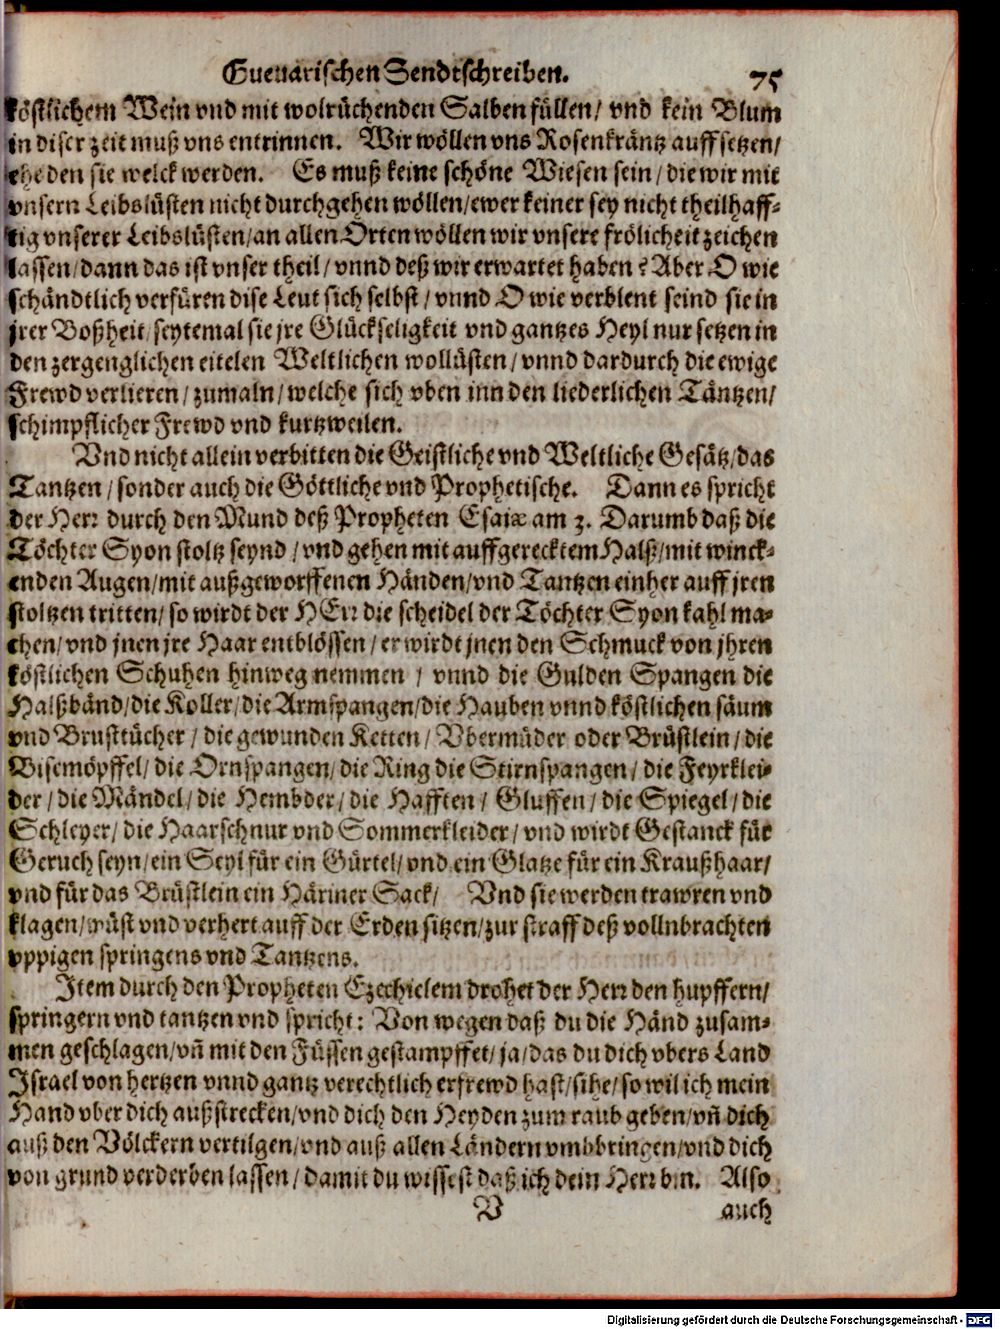 Gueuarischen Sendtschreiben. 75
köstlichem Wein vnd mit wolrüchenden Salben füllen/ vnd kein Blum
in diser zeit muß vns entrinnen. Wir wöllen vns Rosenkräntz auffsetzen/
ehe den sie welck werden. Es muß keine schöne Wiesen sein/ die wir mit
vnsern Leibslüsten nicht durchgehen wöllen/ ewer keiner sey nicht theilhaff-
tig vnserer Leibslüsten/ an allen Orten wöllen wir vnsere frölicheit zeichen
lassen/ dann das ist vnser theil/ vnnd deß wir erwartet haben? Aber O wie
schändtlich verfüren dise Leut sich selbst/ vnnd O wie verblent seind sie in
jrer Boßheit/ seytemal sie jre Glückseligkeit vnd gantzes Heyl nur setzen in
den zergenglichen eitelen Weltlichen wollüsten/ vnnd dardurch die ewige
Frewd verlieren/ zumaln/ welche sich vben inn den liederlichen Täntzen/
schimpflicher Frewd vnd kurtzweilen.
Vnd nicht allein verbitten die Geistliche vnd Weltliche Gesätz/ das
Tantzen/ sonder auch die Göttliche vnd Prophetische. Dann es spricht
der Herr durch den Mund deß Propheten Esaiæ am 3. Darumb daß die
Töchter Syon stoltz seynd/ vnd gehen mit auffgerecktem Halß/ mit winck-
enden Augen/ mit außgeworffenen Händen/ vnd Tantzen einher auff jren
stoltzen tritten/ so wirdt der HErr die scheidel der Töchter Syon kahl ma-
chen/ vnd jnen jre Haar entblössen/ er wirdt jnen den Schmuck von jhren
köstlichen Schuhen hinweg nemmen/ vnnd die Gulden Spangen die
Halßbänd/ die Koller/ die Armspangen/ die Hauben vnnd köstlichen säum
vnd Brusttücher/ die gewunden Ketten/ Vbermüder oder Brüstlein/ die
Bisemöpffel/ die Ornspangen/ die Ring die Stirnspangen/ die Feyrklei-
der/ die Mändel/ die Hembder/ die Hafften/ Gluffen/ die Spiegel/ die
Schleyer/ die Haarschnur vnd Sommerkleider/ vnd wirdt Gestanck für
Geruch seyn/ ein Seyl für ein Gürtel/ vnd ein Glatze für ein Kraußhaar/
vnd für das Brüstlein ein Häriner Sack/ Vnd sie werden trawren vnd
klagen/ wüst vnd verhert auff der Erden sitzen/ zur straff deß vollnbrachten
vppigen springens vnd Tantzens.
Item durch den Propheten Ezechielem drohet der Herr den hupffern/
springern vnd tantzen vnd spricht: Von wegen daß du die Händ zusam-
men geschlagen/ vñ mit den Füssen gestampffet/ ja/ das du dich vbers Land
Israel von hertzen vnnd gantz verechtlich erfrewd hast/ sihe/ so wil ich mein
Hand vber dich außstrecken/ vnd dich den Heyden zum raub geben/ vñ dich
auß den Völckern vertilgen/ vnd auß allen Ländern vmbbringen/ vnd dich
von grund verderben lassen/ damit du wissest daß ich dein Herr bin. Also
V auch
Digitalisierung gefördert durch die Deutsche Forschungsgemeinschaft - DFG